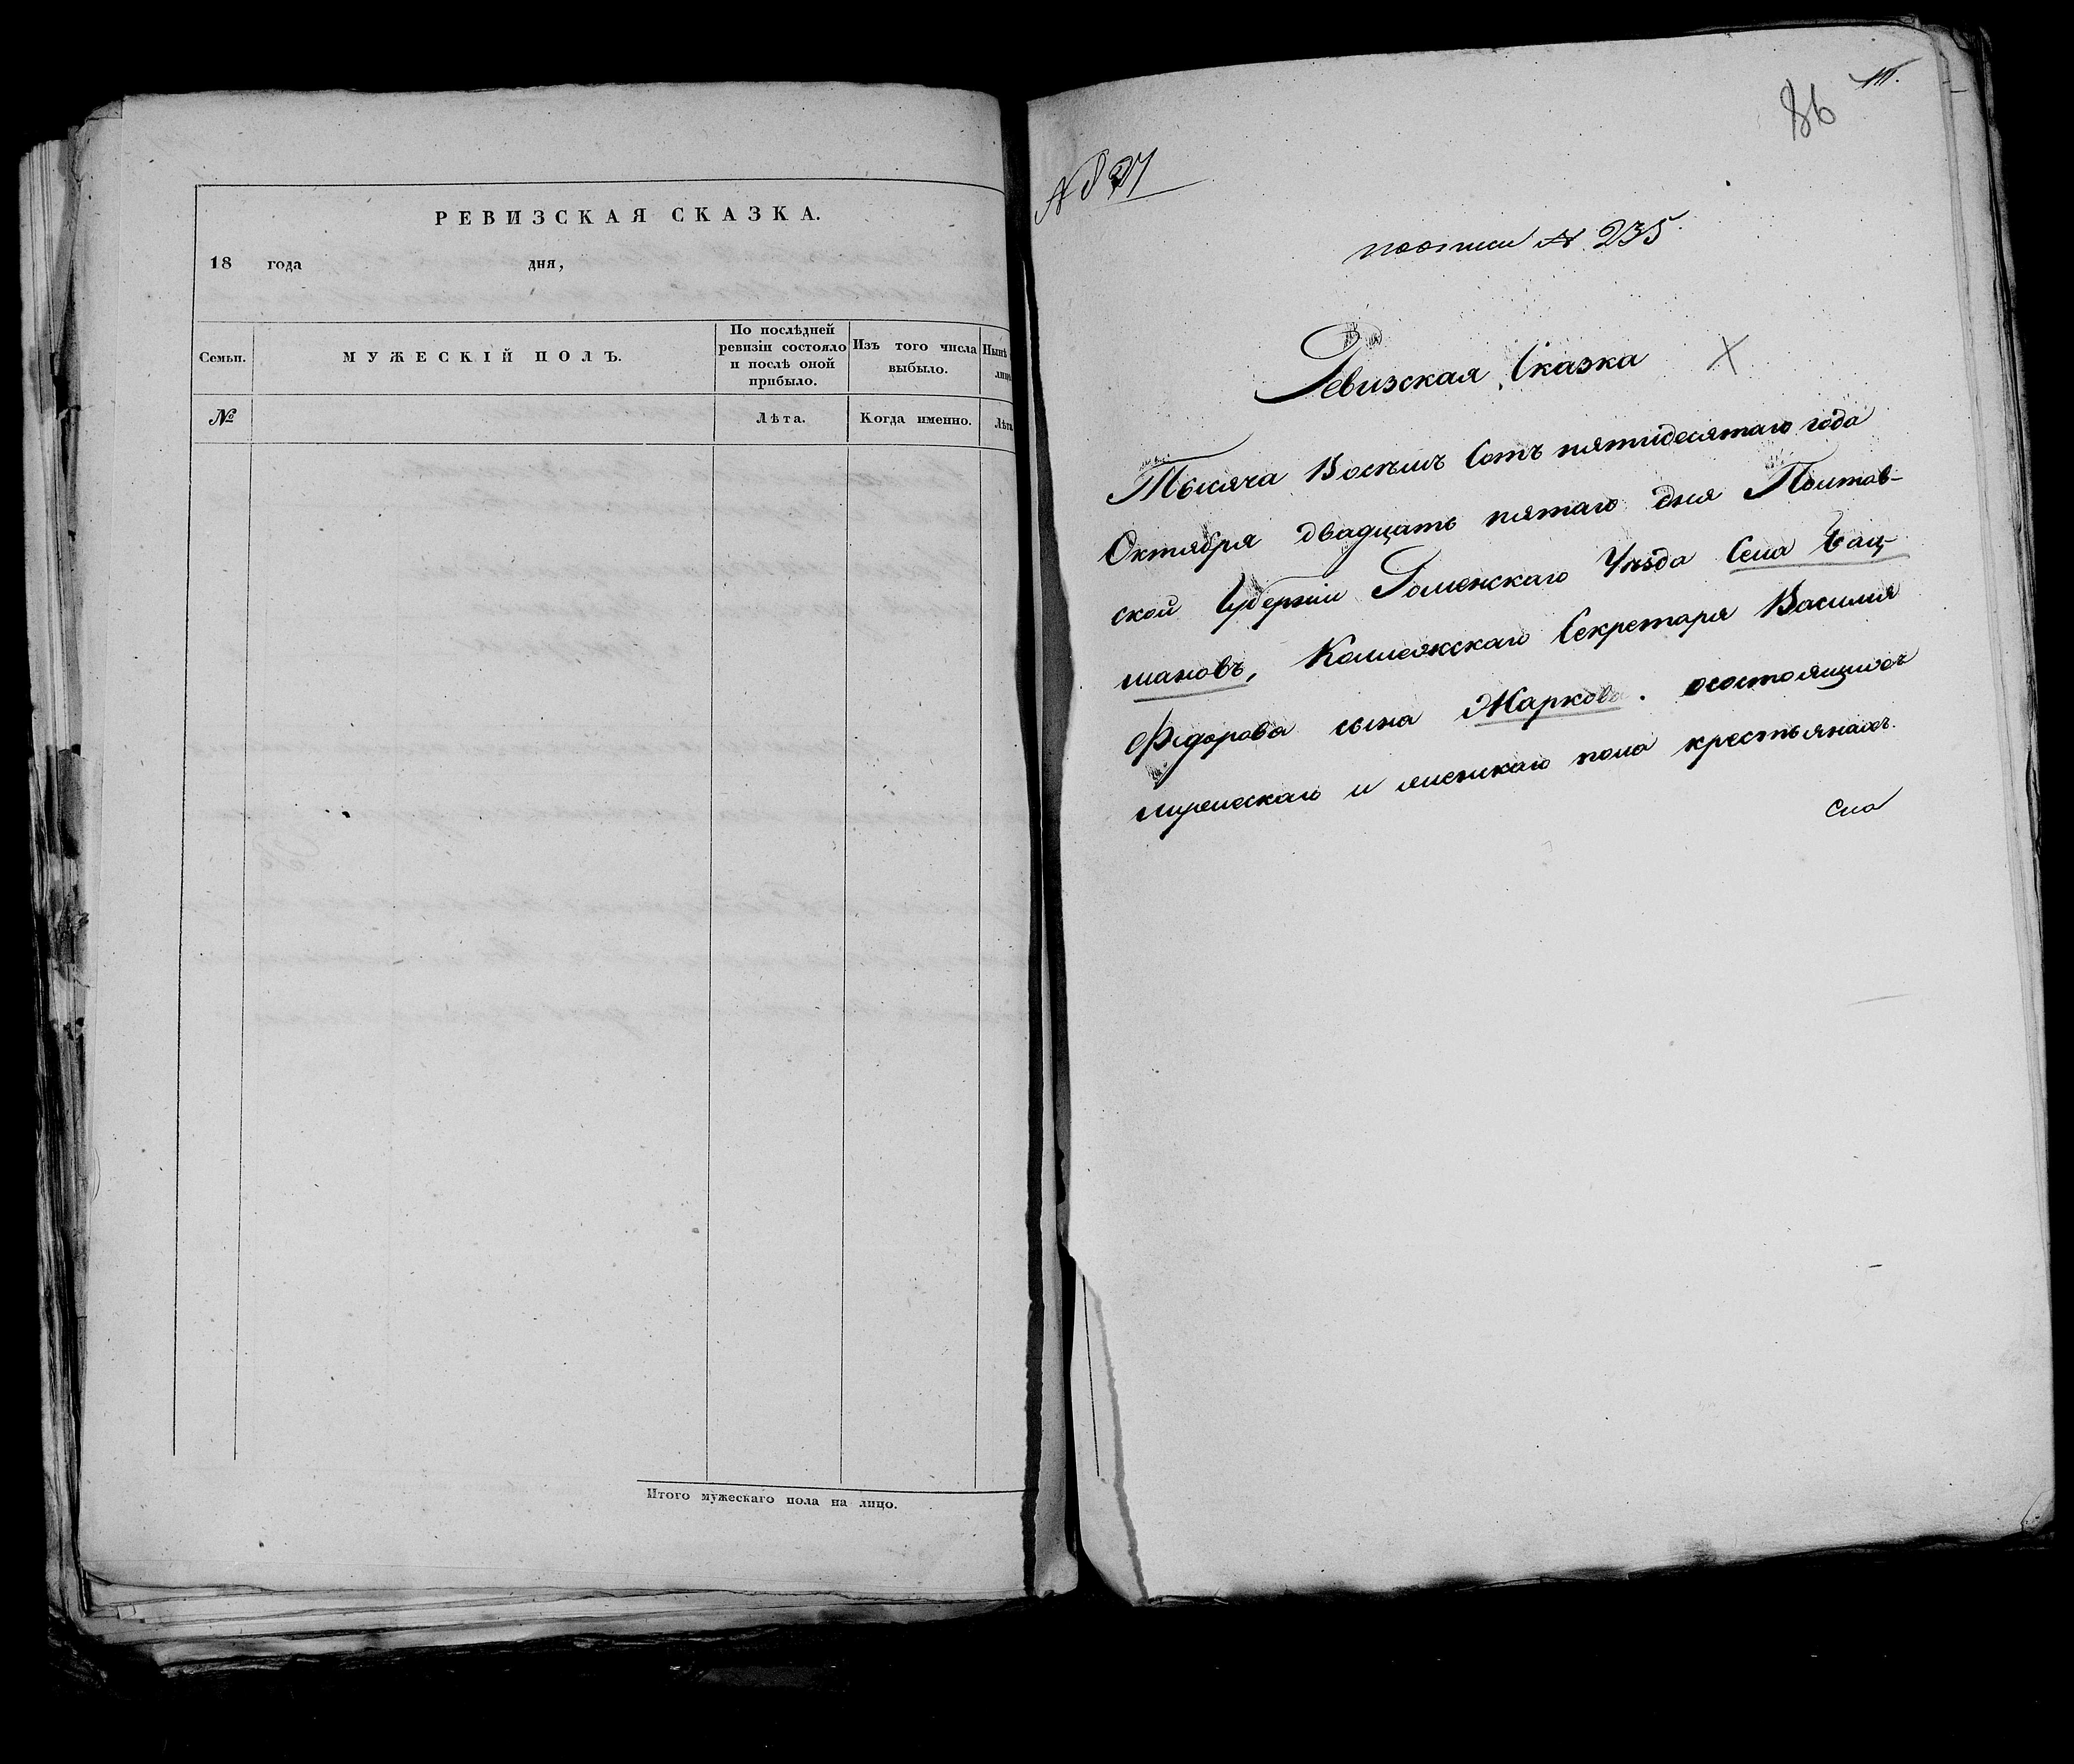 РЕВИЗСКАЯ СКАЗКА.
18 года дня,
Семьи.
МУЖЕСКІЙ ПОЛЪ.
По послѣдней ревизіи состояло и послѣ оной прибыло.
Изъ того числа выбыло.
Нынѣ
№
Лѣта.
Когда именно.
Лѣта
Итого мужескаго пола на лицо.
86
№
поописи № 235.
Ревизская Сказка
Тысяча Восемь Сотъ пятидесятаго года
Октября двадцать пятаго дня Полтав-
ской Губерніи Роменскаго Уѣзда Села Бац-
мановъ, Коллежскаго Секретаря Василія
Федорова сына Жаркова. осостоящихъ
мужескаго и женскаго пола крестьянахъ.